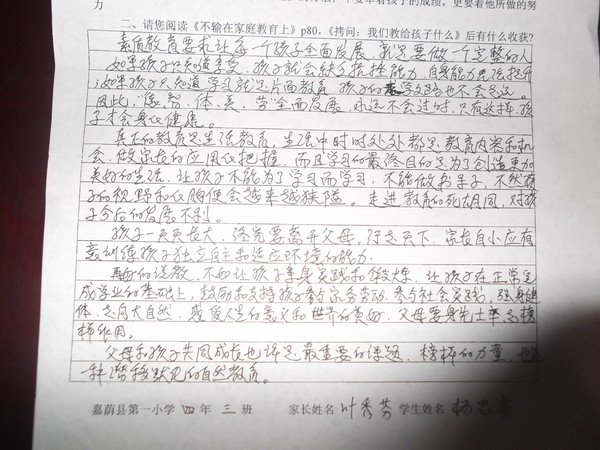 力
二、请您阅读《不输在家庭教育上》p80,《拷问:我们教给孩子什么》后有什么收获?
素质教育要求让每一个孩子全面发展,就是要做一个完整的人
如果孩子只知道享受,孩子就会缺乏抗挫能力,自身能力无法提升
;如果孩子只知道学习就是片面教育,孩子的路也不会
因此,德、智、体、美、劳全面发展,永远不会过时,只有这样,孩
子才会身心健康。
真正的教育是生活教育,生活中时时处处都是教育内容和机
会,做家长的应用心把握,而且学习的最终目的是为了创造更加
美好的生活,让孩子不能为了学习而学习,不能做书呆子,不然孩
子的视野和心胸便会越来越狭隘。走进教育的死胡同,对孩
子今后的发展不利。
孩子一天天长大,终究要离开父母,行走天下,家长自小应有
意训练孩子独立自主和适应环境的能力。
再好的说教,不如让孩子亲身实践和锻炼,让孩子在正常完
成学业的基础上,鼓励和支持孩子参与家务劳动,参与社会实践,强身健
体,走向大自然,感受人生的意义和世界的美好,父母要身先士卒起榜
样作用。
父母和孩子共同成长也许是最重要的课题,榜样的力量,也是
一种潜移默化的自然教育。
嘉荫县第一小学 四 年 三 班 家长姓名 叶秀芬 学生姓名 杨忠